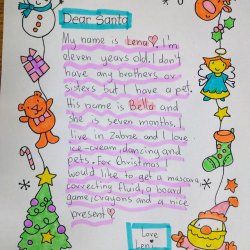 Dear Santa
My name is Lena. I'm
eleven years old. I don't
have any brothers or
sisters but I have a pet.
His name is Bella and
she is seven months. I
live in Zabrze and I love
ice-cream, dancing and
pets. For Christmas I
would like to get a mascara,
correcting fluid, a board
game, crayons and a nice
present
Love
Lena